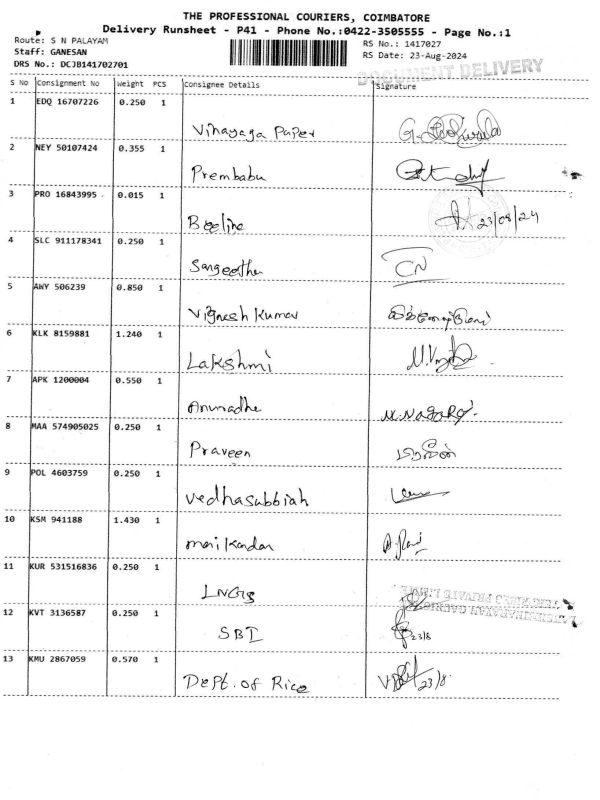 THE PROFESSIONAL COURIERS, COIMBATORE
Delivery Runsheet - P41 - Phone No.:0422-3505555 - Page No.:1
Route: S N PALAYAM
RS No.: 1417027
Staff: GANESAN
RS Date: 23-Aug-2024
DRS No.: DCJB141702701
DOCUMENT DELIVERY
S No Consignment No Weight PCS Consignee Details Signature
1 EDQ 16707226 0.250 1
Vinayaga Paper
2 NEY 50107424 0.355 1
Prembabu
3 PRO 16843995 0.015 1
Beeline 23/08/24
4 SLC 911178341 0.250 1
Sangeetha CN
5 AWY 506239 0.850 1
Vignesh Kumar
6 KLK 8159881 1.240 1
Lakshmi
7 APK 1200004 0.550 1
Anuradha
8 MAA 574905025 0.250 1
Praveen பிரவீன்
9 POL 4603759 0.250 1
Vedhasubbiah
10 KSM 941188 1.430 1
manikandan
11 KUR 531516836 0.250 1
LNGS
12 KVT 3136587 0.250 1
SBI 23/8
13 KMU 2867059 0.570 1
Dept. of Rice 23/8